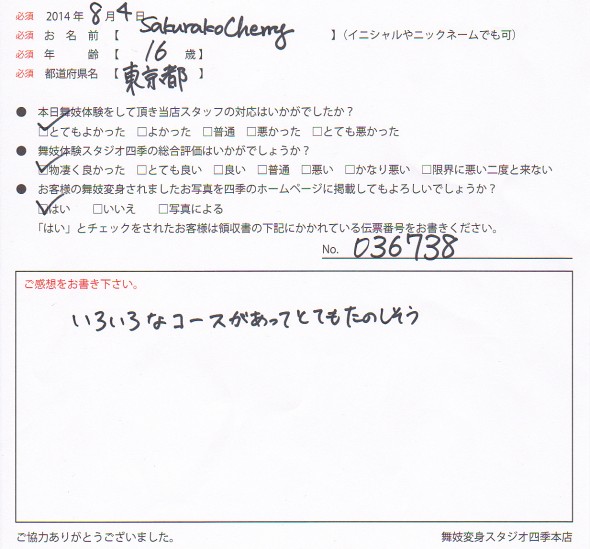 必須 2014年 8月 4日
必須 お名前【 SakurakoCherry 】(イニシャルやニックネームでも可)
必須 年齢【 16 歳】
必須 都道府県名【 東京都 】
● 本日舞妓体験をして頂き当店スタッフの対応はいかがでしたか?
☑とてもよかった □よかった □普通 □悪かった □とても悪かった
● 舞妓体験スタジオ四季の総合評価はいかがでしょうか?
☑物凄く良かった □とても良い □良い □普通 □悪い □かなり悪い □限界に悪い二度と来ない
● お客様の舞妓変身されましたお写真を四季のホームページに掲載してもよろしいでしょうか?
☑はい □いいえ □写真による
「はい」とチェックをされたお客様は領収書の下記にかかれている伝票番号をお書きください。
No. 036738
ご感想をお書き下さい。
いろいろなコースがあってとてもたのしそう
ご協力ありがとうございました。 舞妓変身スタジオ四季本店